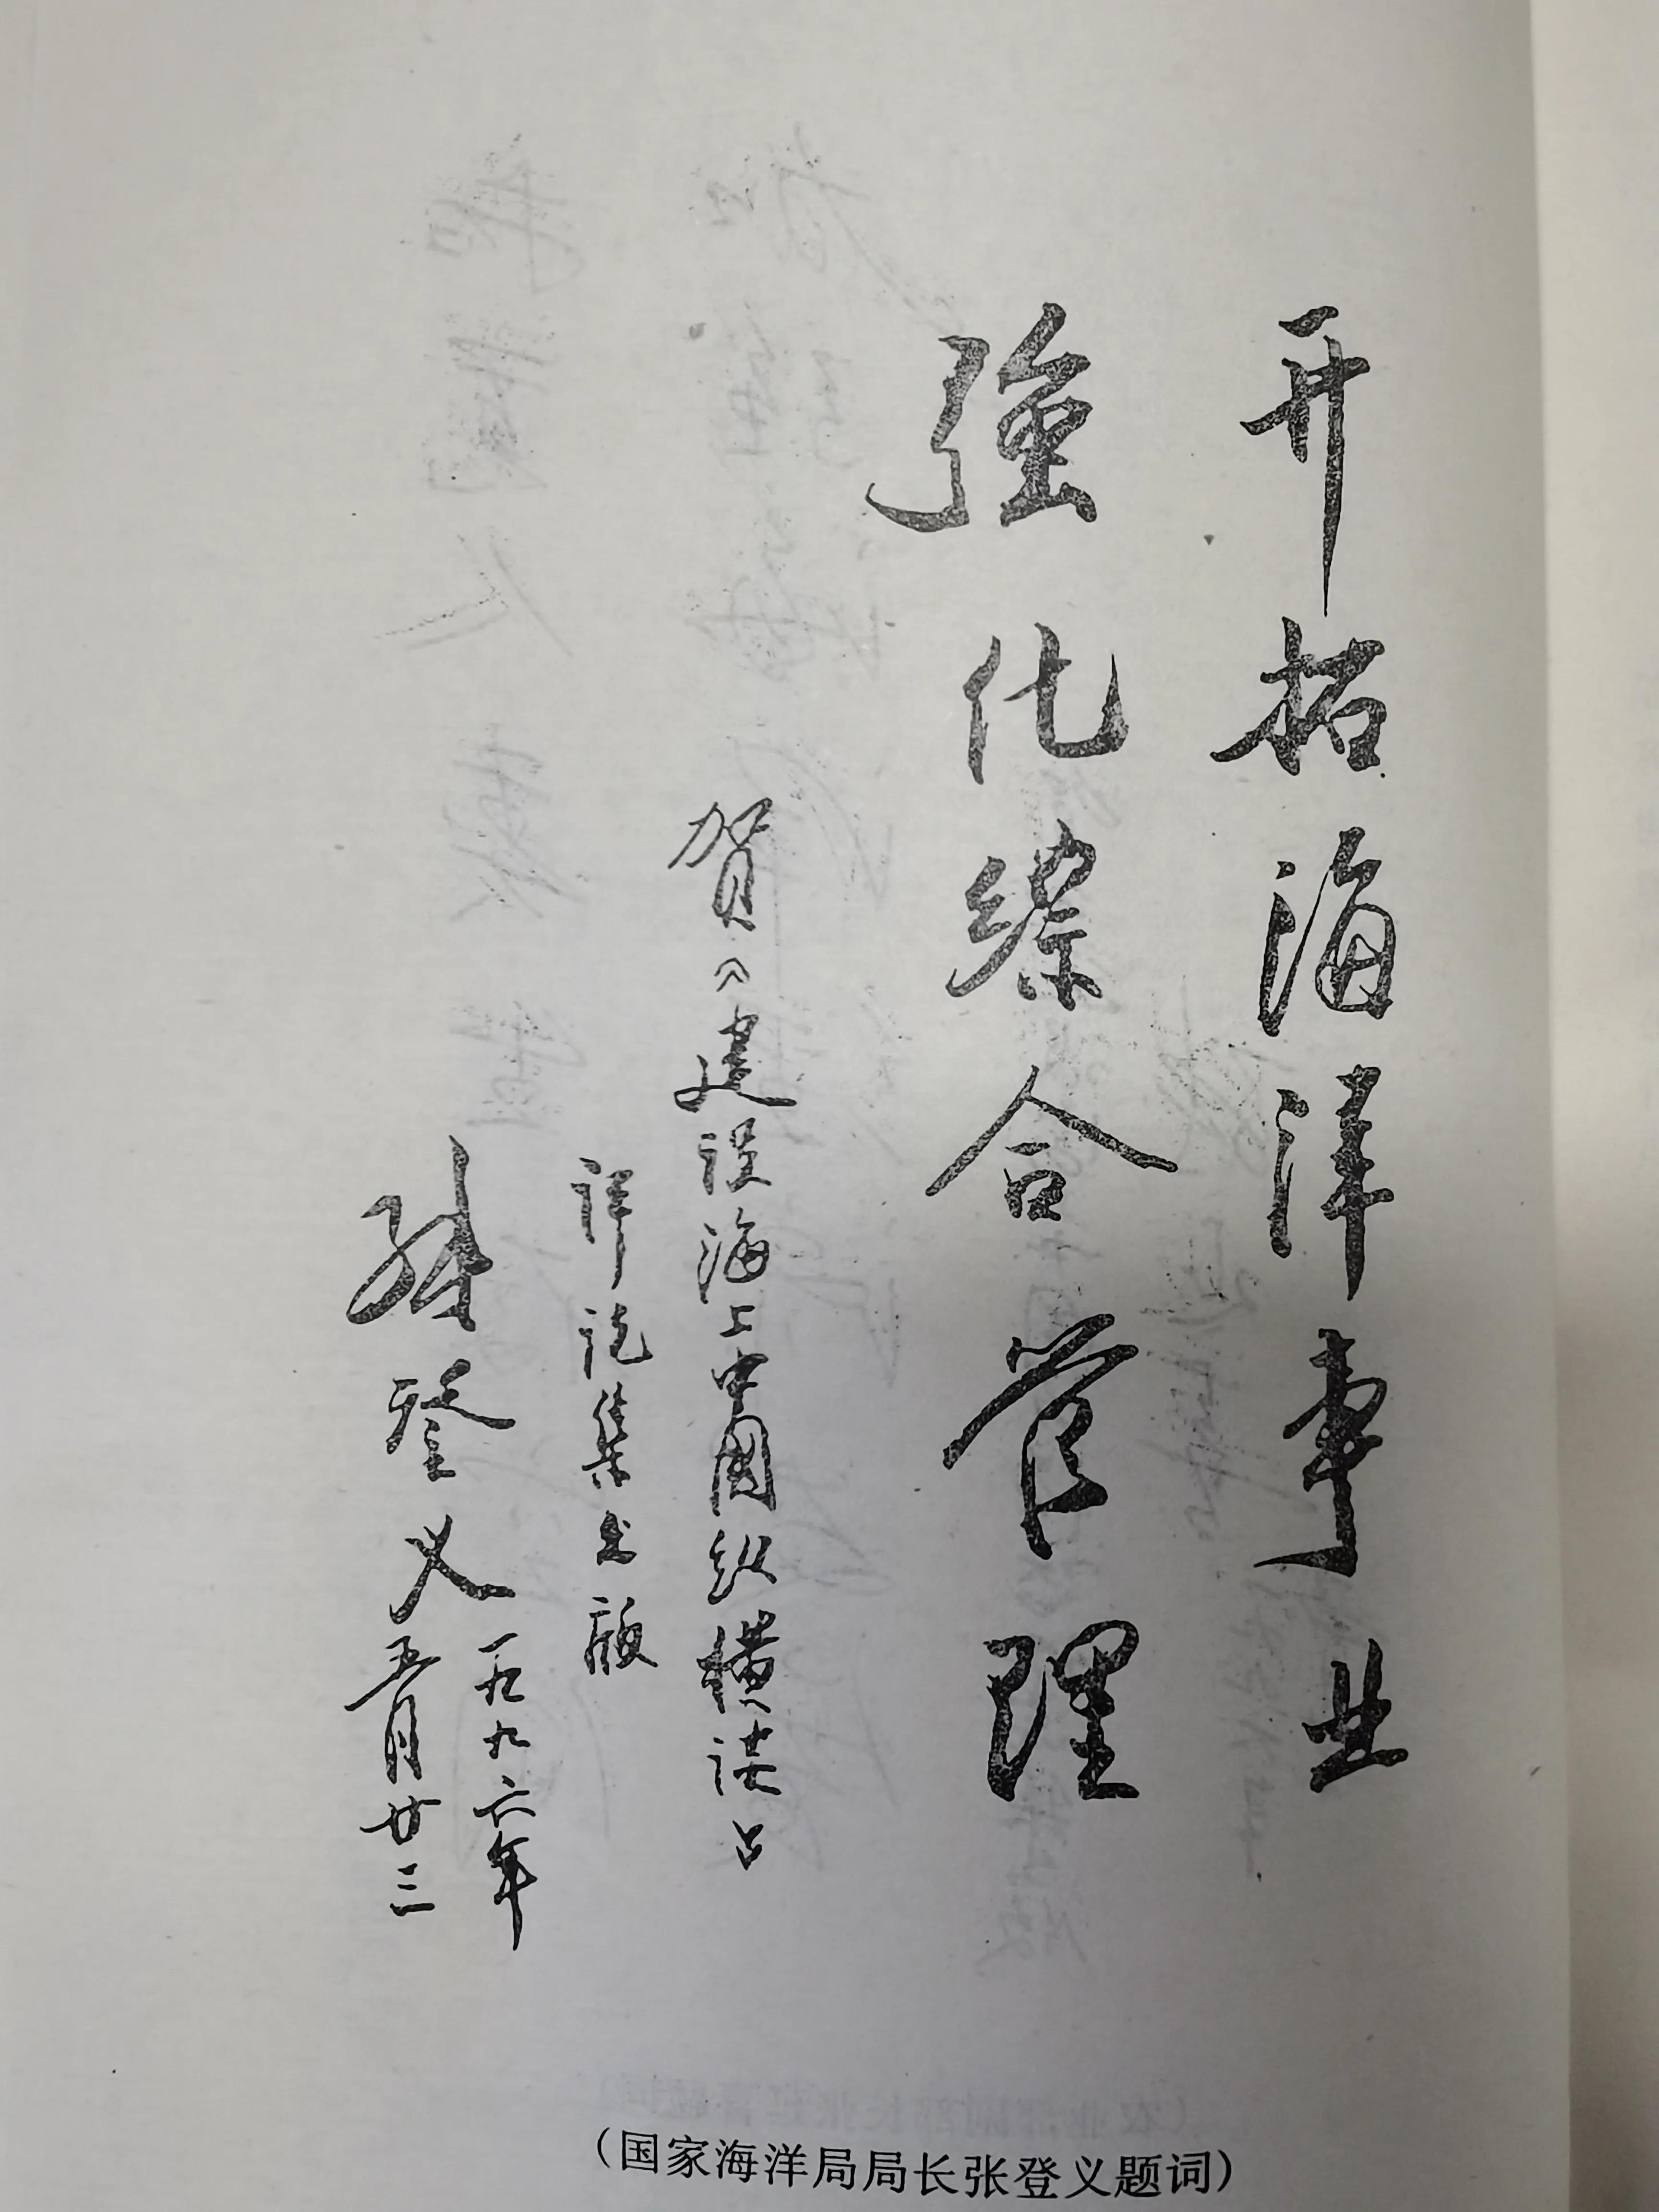 开拓海洋事业
強化综合管理
贺《建设海上中国纵横谈》
评论集出版
张登义
一九九六年
五月廿三
(国家海洋局局长张登义题词)